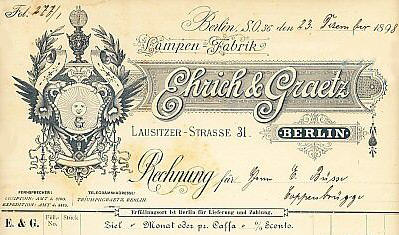 Fol. 277/1
Berlin, S.O. 36 den 23. Dezember 1898
Lampen-Fabrik
Ehrich & Graetz
Lausitzer-Strasse 31. BERLIN
G
Rechnung für Herrn E. Büsse
Coppenbrügge
FERNSPRECHER:
COMPTOIR: AMT 4.
EXPEDITION: AMT 4.
TELEGRAMMADRESSE:
TRIUMPHGRAETZ, BERLIN
Erfüllungsort ist Berlin für Lieferung und Zahlung.
E. & G. Füll. No. Stück
Ziel Monat oder pr. Cassa % Sconto.